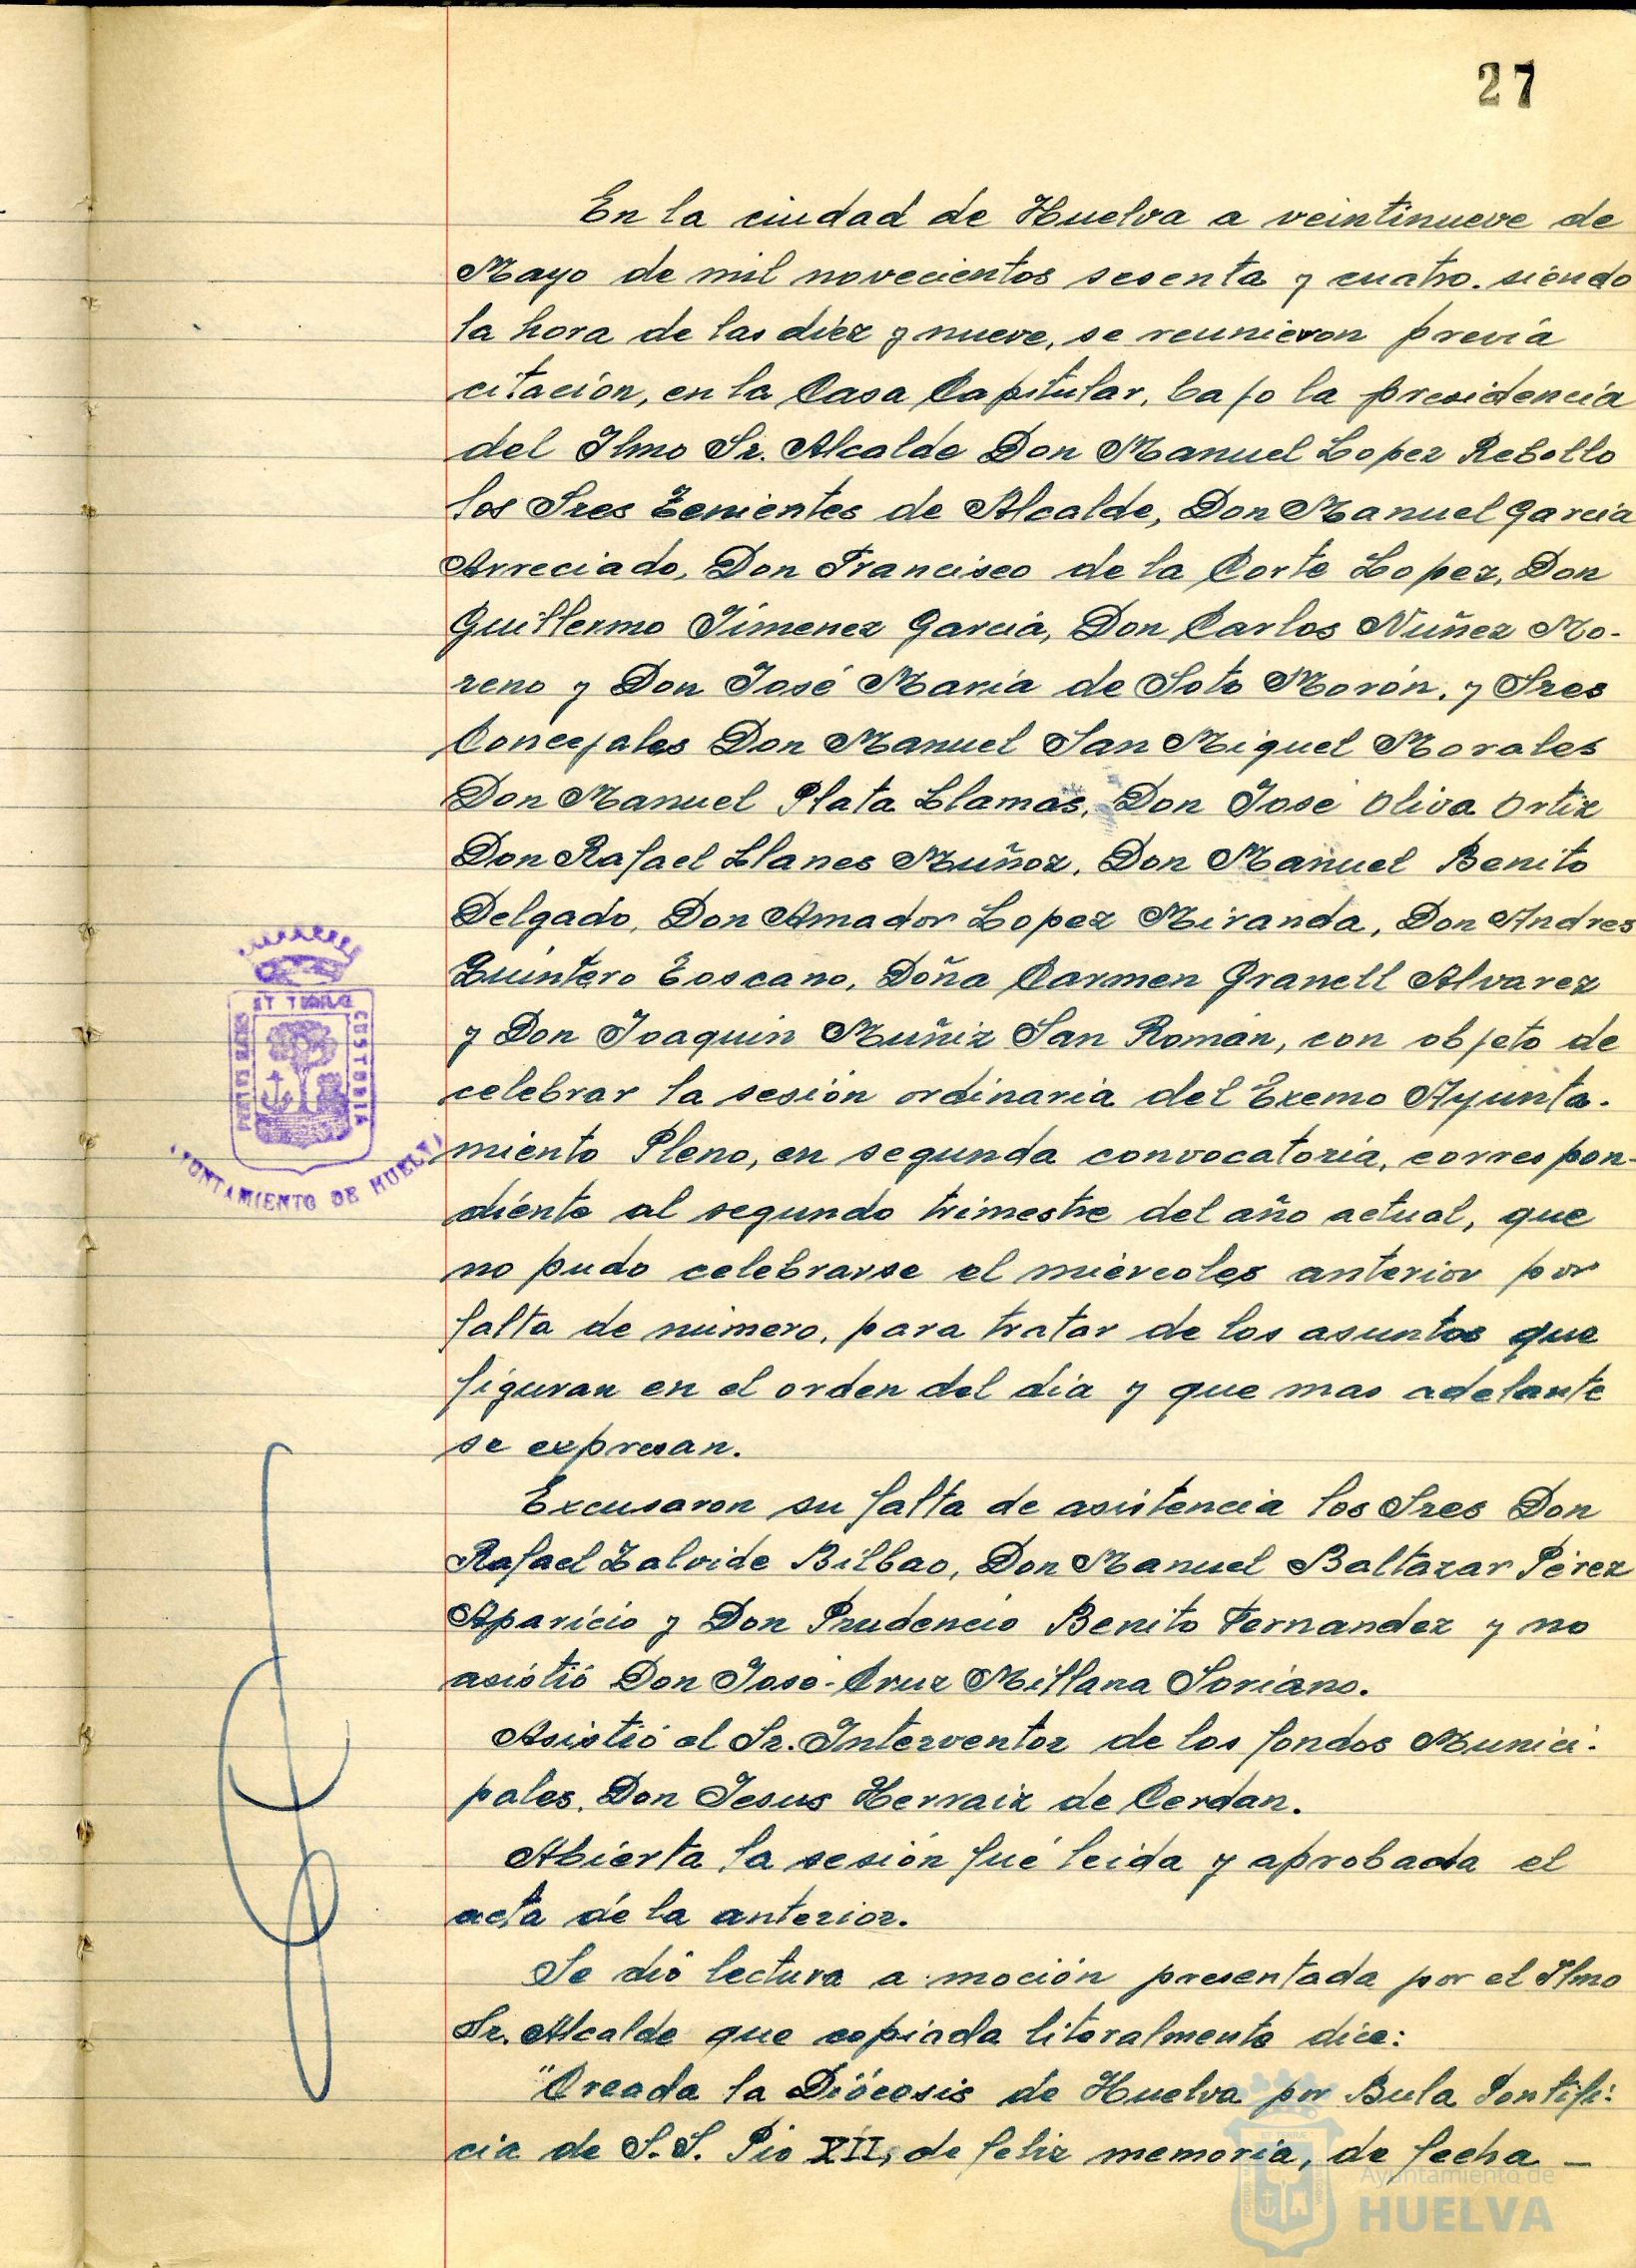 27
En la ciudad de Huelva a veintinueve de
Mayo de mil novecientos sesenta y cuatro. siendo
la hora de las diez y nueve, se reunieron previa
citación, en la Casa Capitular, bajo la presidencia
del Ilmo Sr. Alcalde Don Manuel Lopez Rebollo
los Sres Tenientes de Alcalde, Don Manuel Garcia
Arreciado, Don Francisco de la Corte Lopez, Don
Guillermo Jimenez Garcia, Don Carlos Nuñez Mo-
reno y Don José Maria de Soto Morón, y Sres
Concejales Don Manuel San Miguel Morales
Don Manuel Plata Llamas, Don José Oliva Ortiz
Don Rafael Llanes Muñoz, Don Manuel Benito
Delgado, Don Amador Lopez Miranda, Don Andres
Quintero Toscano, Doña Carmen Granell Alvarez
y Don Joaquin Muñiz San Román, con objeto de
celebrar la sesión ordinaria del Excmo Ayunta-
miento Pleno, en segunda convocatoria, correspon-
diente al segundo trimestre del año actual, que
no pudo celebrarse el miércoles anterior por
falta de número, para tratar de los asuntos que
figuran en el orden del dia y que mas adelante
se expresan.
Excusaron su falta de asistencia los Sres Don
Rafael Zalvide Bilbao, Don Manuel Baltazar Pérez
Aparicio y Don Prudencio Benito Fernandez y no
asistió Don José-Cruz Millana Soriano.
Asistió el Sr. Interventor de los fondos Munici-
pales, Don Jesus Herraiz de Cerdan.
Abierta la sesión fué leida y aprobada el
acta de la anterior.
Se dió lectura a moción presentada por el Ilmo
Sr. Alcalde que copiada literalmente dice:
"Creada la Diócesis de Huelva por Bula Pontifi-
cia de S.S. Pio XII, de feliz memoria, de fecha —
PORTUS MARIS
ET TERRAE
CUSTODIA
AYUNTAMIENTO DE HUELVA
Ayuntamiento de
HUELVA